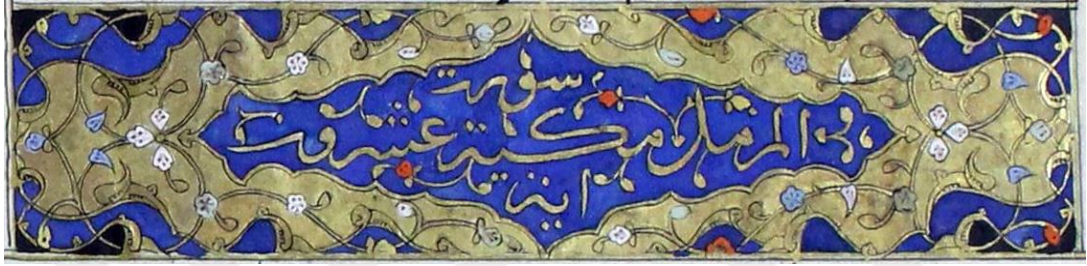 سورت
المزمل مكية عشرون
اية